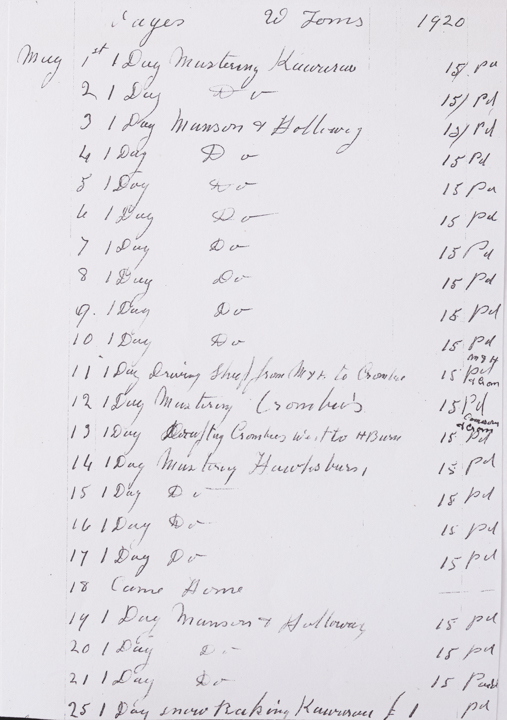 Pages W Toms 1920
May 1st 1 Day Mustering Kawarau 15/ Pd
2 1 Day Do 15/ Pd
3 1 Day Manson & Holloway 15/ Pd
4 1 Day Do 15 Pd
5 1 Day Do 15 Pd
6 1 Day Do 15 Pd
7 1 Day Do 15 Pd
8 1 Day Do 15 Pd
9. 1 Day Do 15 Pd
10 1 Day Do 15 Pd
11 1 Day Driving Sheep from M & H to Crombie 15 Pd M & H & Crom
12 1 Day Mustering Crombies 15 Pd
13 1 Day Drafting Crombies Went to H Burn 15 Pd & Crom
14 1 Day Mustering Hawksburn 15 Pd
15 1 Day Do 15 Pd
16 1 Day Do 15 Pd
17 1 Day Do 15 Pd
18 Came Home
19 1 Day Manson & Holloway 15 Pd
20 1 Day Do 15 Pd
21 1 Day Do 15 Paid
25 1 Day snow Raking Kawarau £ 1 Pd